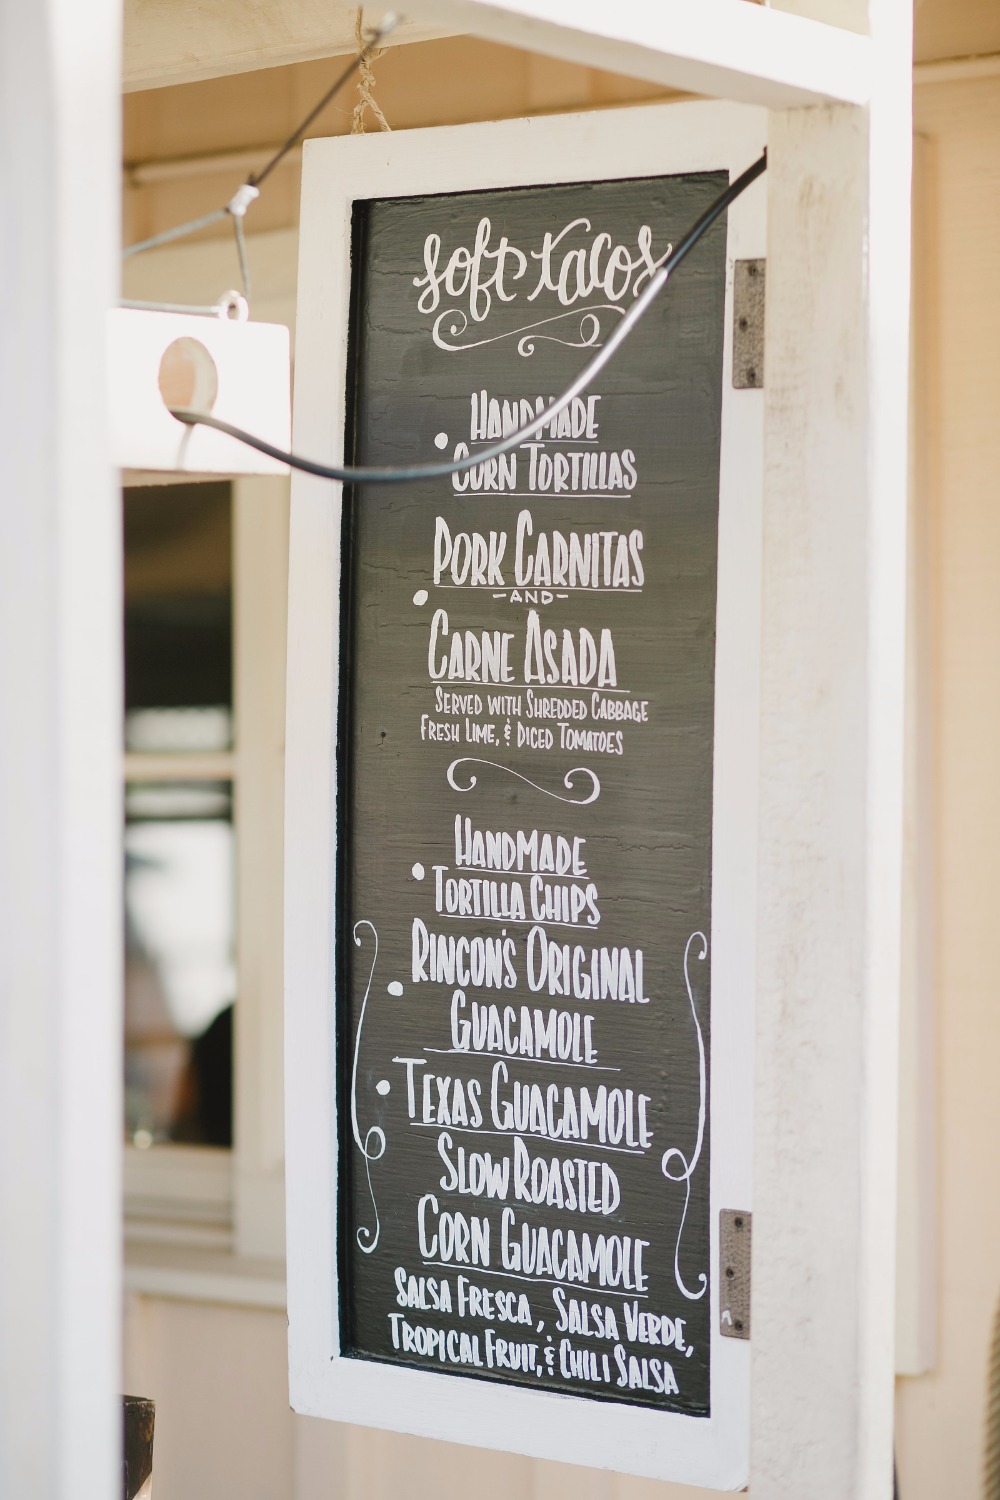 soft tacos
• HANDMADE
CORN TORTILLAS
• PORK CARNITAS
-AND-
CARNE ASADA
SERVED WITH SHREDDED CABBAGE
FRESH LIME, & DICED TOMATOES
• HANDMADE
TORTILLA CHIPS
• RINCON'S ORIGINAL
GUACAMOLE
• TEXAS GUACAMOLE
SLOW ROASTED
CORN GUACAMOLE
SALSA FRESCA, SALSA VERDE,
TROPICAL FRUIT, & CHILI SALSA